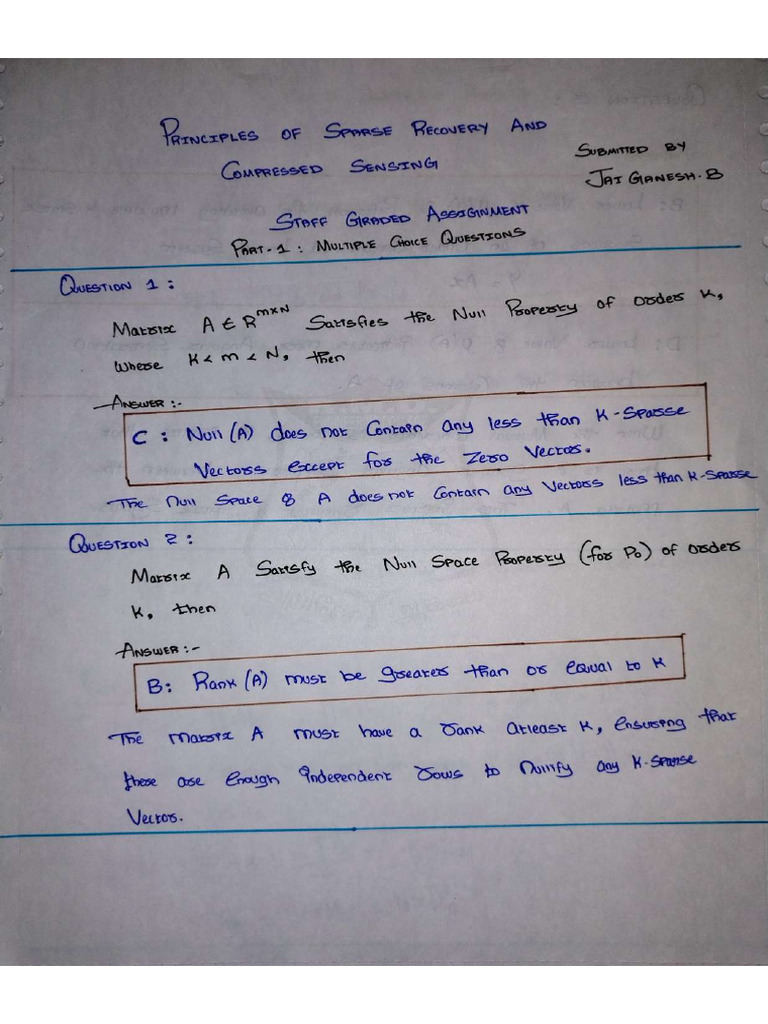 PRINCIPLES OF SPARSE RECOVERY AND
COMPRESSED SENSING
SUBMITTED BY
JAI GANESH.B
STAFF GRADED ASSIGNMENT
PART-1: MULTIPLE CHOICE QUESTIONS
QUESTION 1:
Matrix A ∈ R^m×N Satisfies the Null Property of order K,
where K < m < N, then
ANSWER:-
C: Null(A) does not Contain any less than K-Sparse
Vectors except for the Zero Vector.
The Null Space of A does not Contain any Vectors less than K-Sparse
QUESTION 2:
Matrix A Satisfy the Null Space Property (for P0) of order
K, then
ANSWER:-
B: Rank(A) must be greater than or equal to K
The matrix A must have a rank atleast K, ensuring that
there are enough independent rows to Nullify any K-Sparse
Vector.